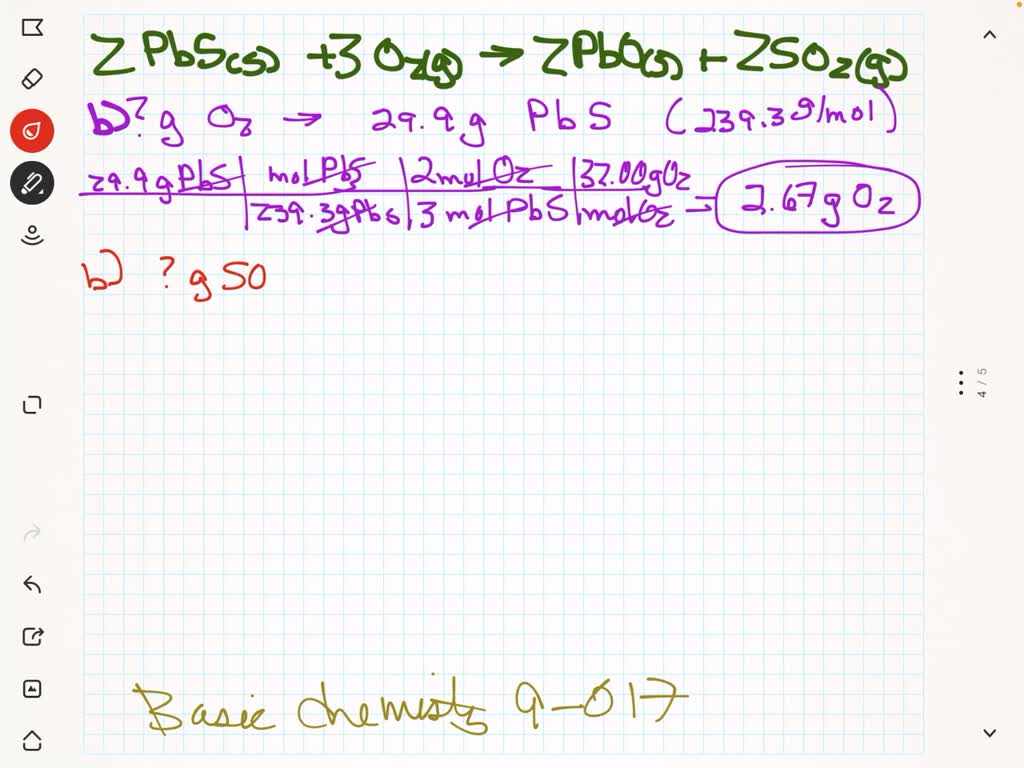 2 PbS(s) + 3 O2(g) → 2PbO(s) + 2SO2(g)
b) ? g O2 → 29.9 g PbS (239.3 g/mol)
29.9 g PbS | mol PbS | 2 mol O2 | 32.00 g O2
239.3 g PbS | 3 mol PbS | mol O2 → 2.67 g O2
b) ? g SO
4 / 5
Basic Chemistry 9-017